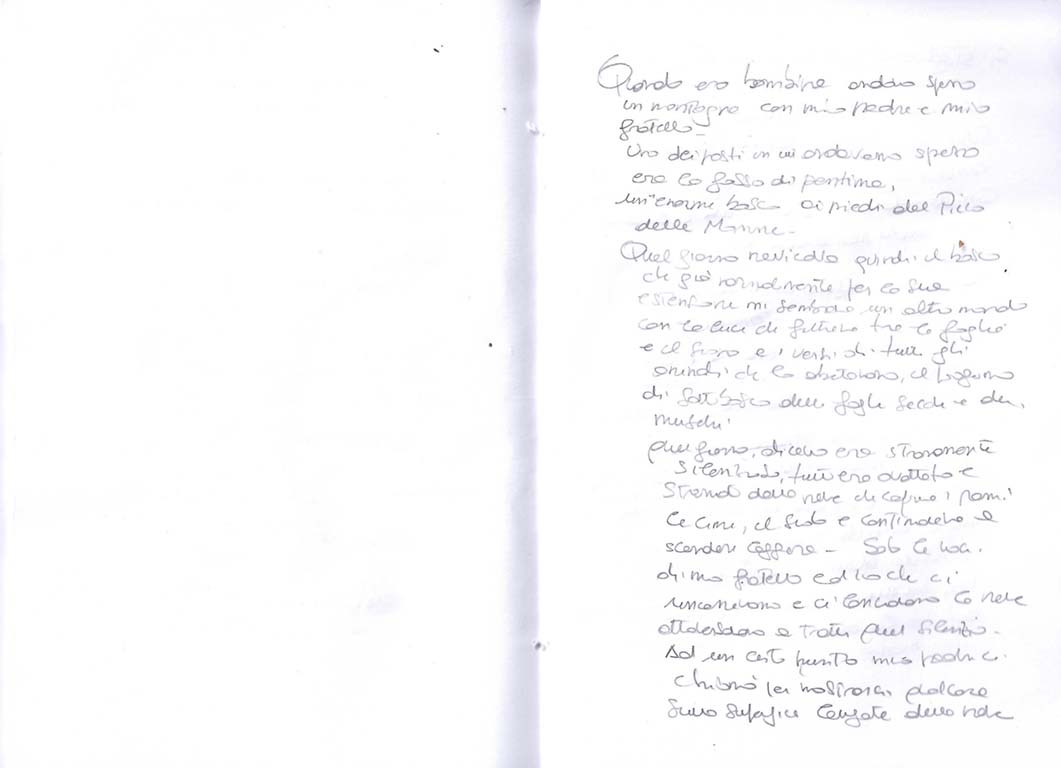 Quando ero bambina andavo spesso
in montagna con mio padre e mio
fratello -
Uno dei posti in cui andavamo spesso
era la fossa di pentima,
un'enorme bosco ai piedi del Picco
delle Manne -
Quel giorno nevicava quindi il bosco
che già normalmente per la sua
estensione mi sembrava un altro mondo
con la luce che filtrava tra le foglie
e il suono e i versi di tutti gli
animali che lo abitavano, il profumo
di sottobosco delle foglie secche e dei
muschi
quel giorno, dicevo era stranamente
silenzioso, tutto era ovattato e
dalla neve che copriva i rami
le cime, il suolo e continuava a
scendere leggera - Solo le voci
di mio fratello ed io che ci
rincorrevamo e ci lanciavamo la neve
a tratti quel silenzio -
Ad un certo punto mio padre ci
chiamò per mostrarci qualcosa
sulla superficie della neve